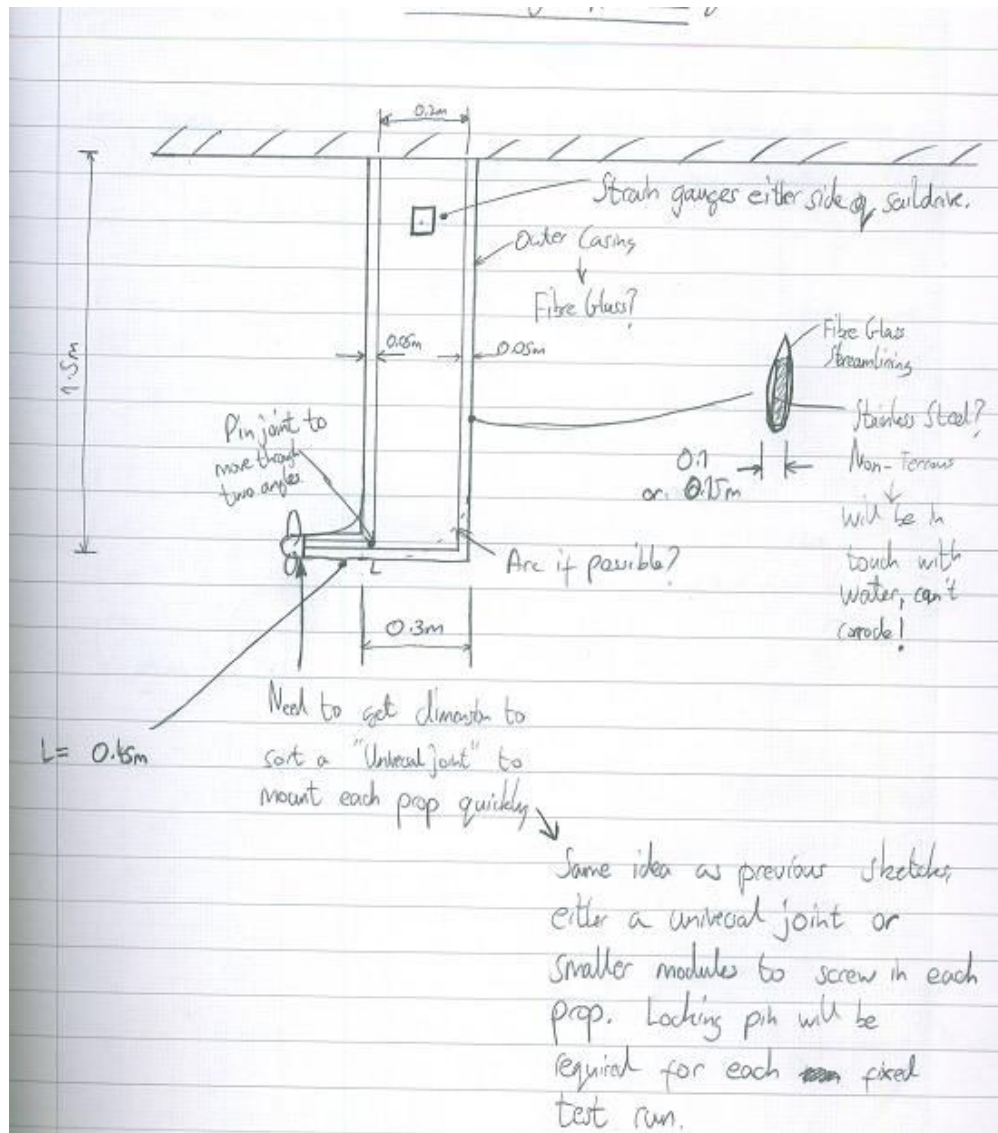 0.2m
Strain gauges either side of saildrive.
Outer Casing
Fibre Glass?
0.05m
0.05m
1.5m
Fibre Glass
Streamlining
Stainless Steel?
Non-Ferrous
will be in
touch with
water, can't
corrode!
0.1
or 0.15m
Pin joint to
move through
two angles
Arc if possible?
L
0.3m
L= 0.45m
Need to get dimension to
sort a "Univecal Joint" to
mount each prop quickly
Same idea as previous sketches,
either a univecal joint or
smaller modules to screw in each
prop. Locking pin will be
required for each fixed
test run.